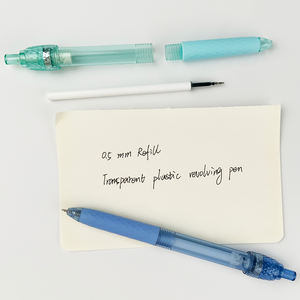 0.5 mm Refill
Transparent plastic revolving pen